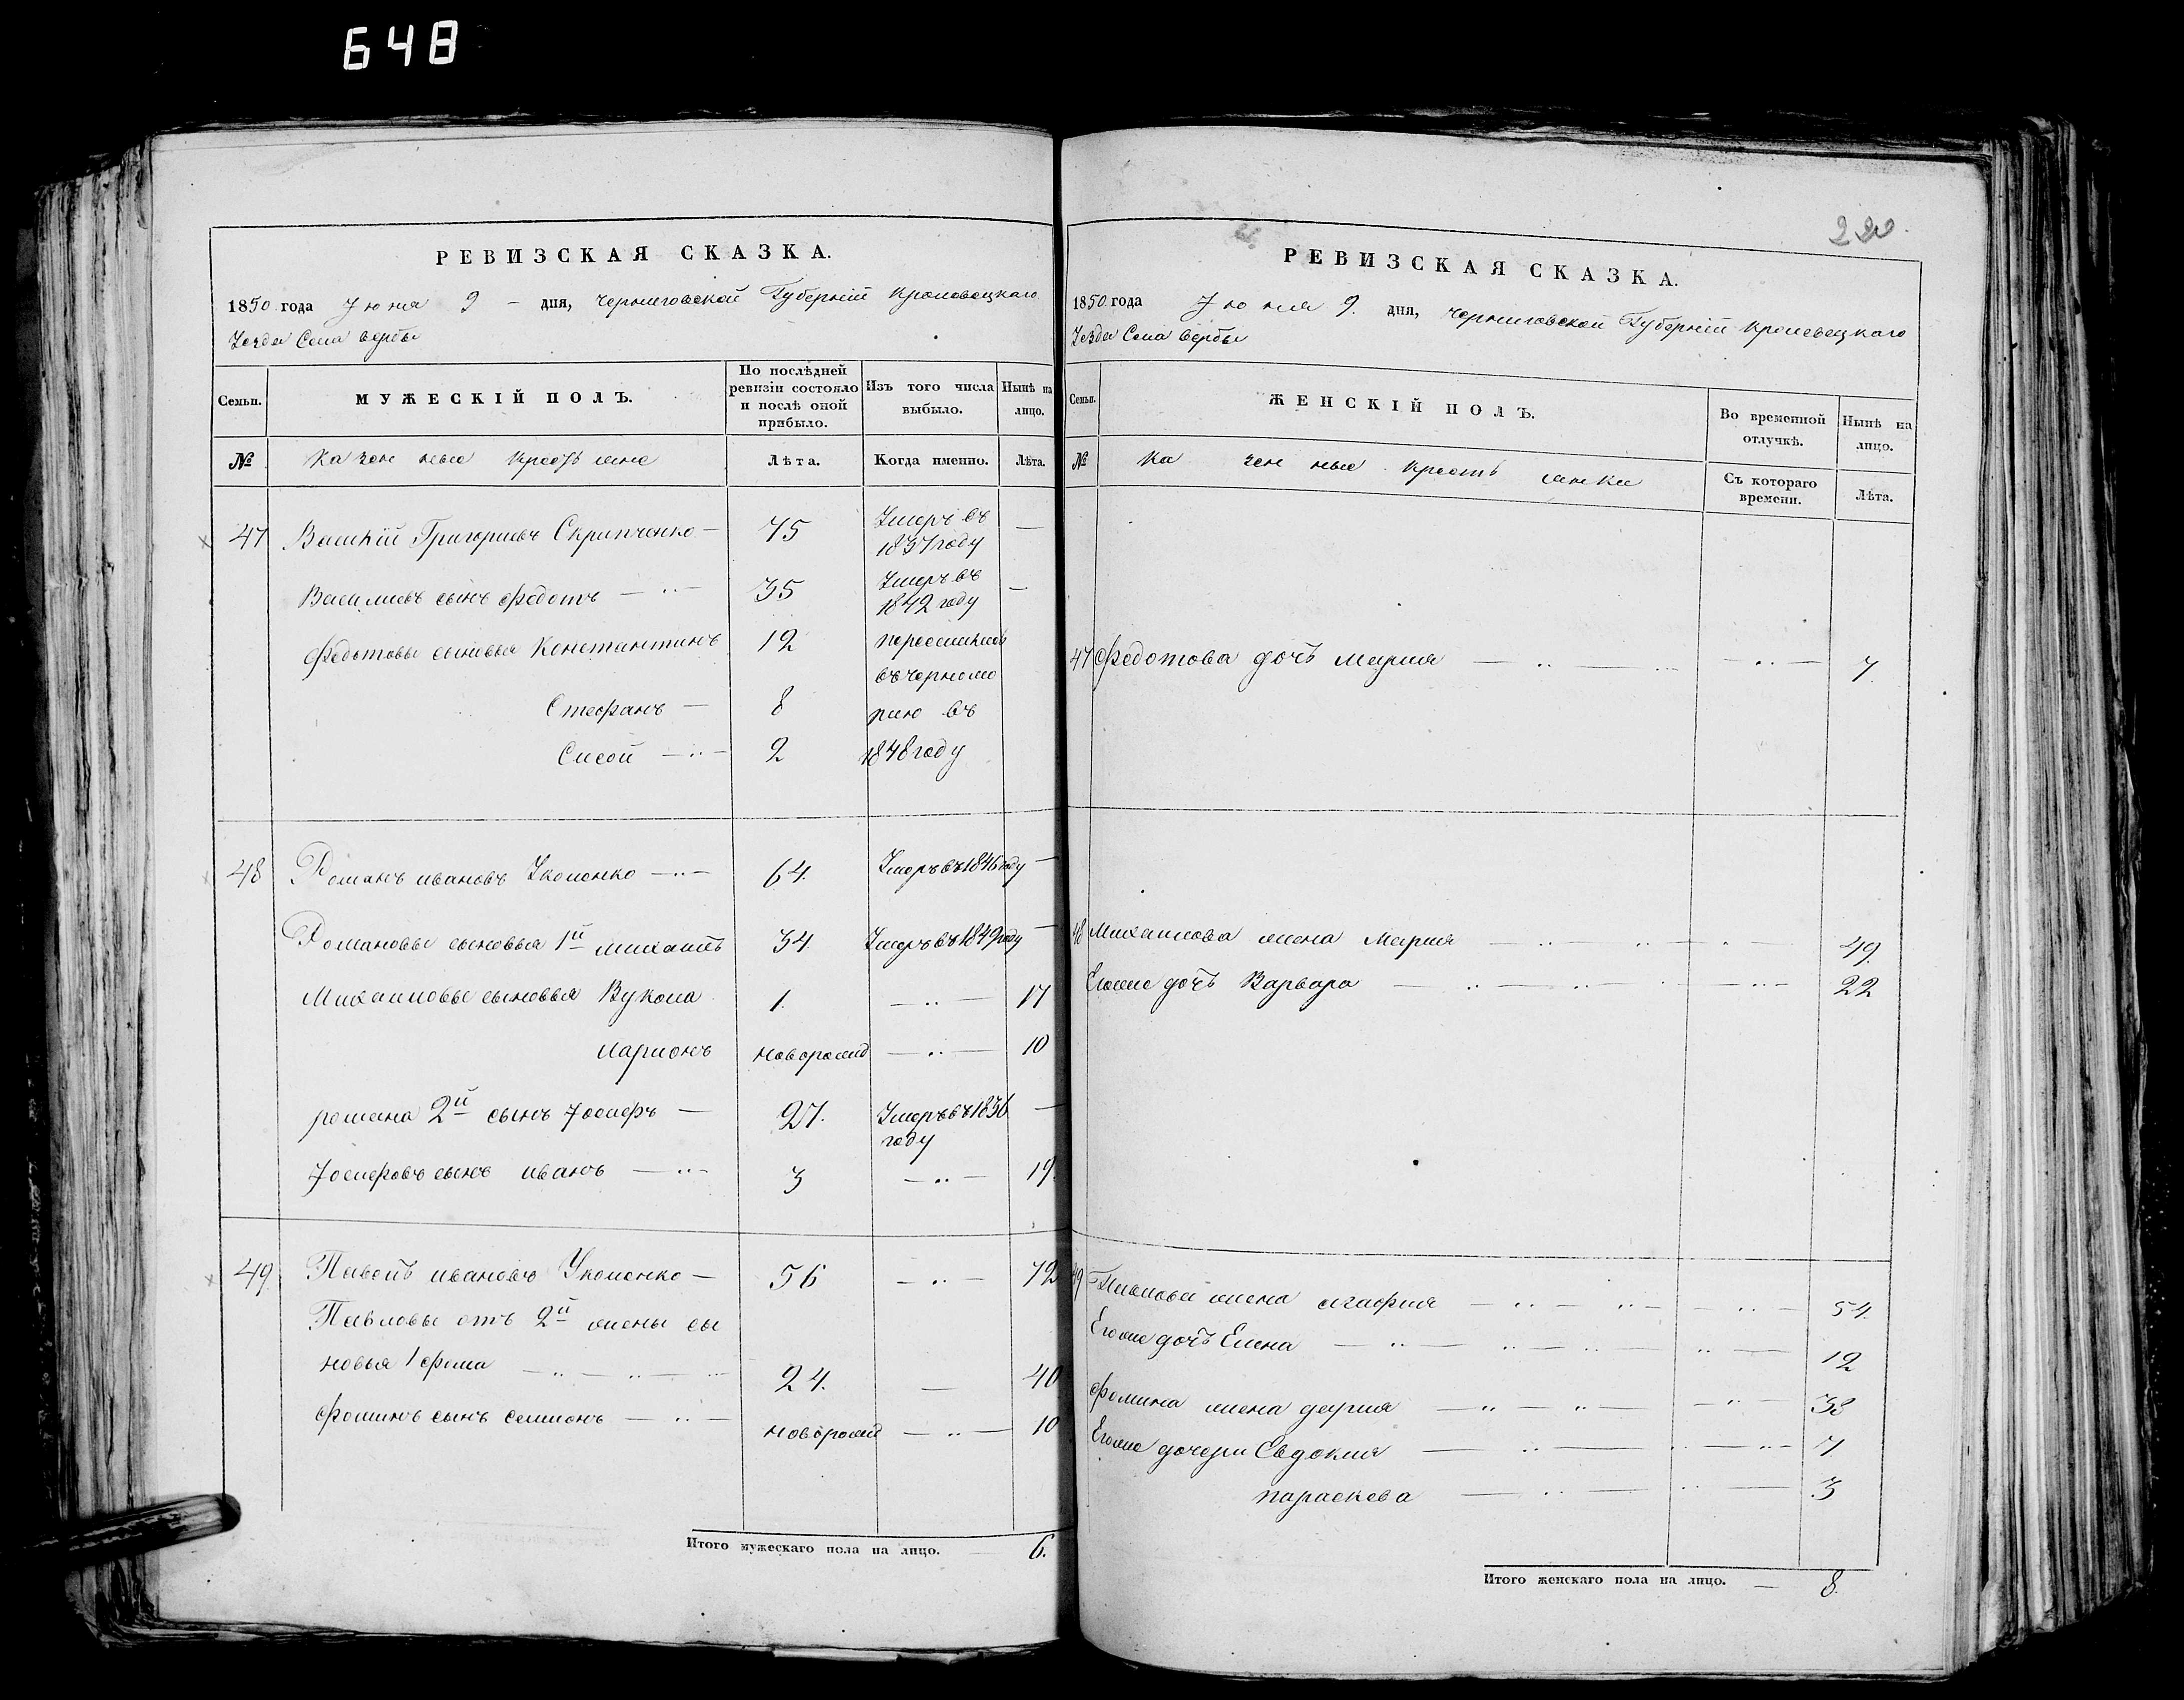 648
РЕВИЗСКАЯ СКАЗКА.
1850 года Іюня 9 – дня, Черниговской Губерніи Кролевецкаго
Уезда Села Вербы
Семьи.
МУЖЕСКІЙ ПОЛЪ.
По послѣдней ревизіи состояло и послѣ оной прибыло.
Изъ того числа выбыло.
Нынѣ на лицо.
№
Казенные Крестьяне
Лѣта.
Когда именно.
Лѣта.
47 Василій Григорьевъ Скрипченко – 75 Умеръ въ 1837 году –
Васильевъ сынъ Федотъ 35 Умеръ въ 1842 году –
Федотовы сыновья Константинъ 12 переселился
въ черномо
Стефанъ – 8 рию въ
Сисой 2 1848 году
48 Романъ ивановъ Уколенко 64. Умеръ въ 1846 году –
Романовы сыновья 1й михаилъ 34. Умеръ въ 1849 году –
Михаиловы сыновья Вукола 1. 17
иларионъ новорожд 10
романа 2й сынъ Іосифъ – 27. Умеръ въ 1836 году –
Іосифовъ сынъ иванъ 3 19.
49 Павелъ ивановъ Уколенко – 56 72
Павловы отъ 2й жены сы
новья 1 фома 24. – 40
фоминъ сынъ семионъ новорожд 10
Итого мужескаго пола на лицо. 6.
220.
РЕВИЗСКАЯ СКАЗКА.
1850 года Іюня 9. дня, Черниговской Губерніи Кролевецкаго
Уезда Села Вербы
Семьи.
ЖЕНСКІЙ ПОЛЪ.
Во временной отлучкѣ.
Нынѣ на лицо.
№
Казенные Крестьянки
Съ котораго времени.
Лѣта.
47 Федотова дочь мария 7.
48 Михаилова жена Мария 49.
Егоже дочь Варвара 22
49 Павлова жена агафия 54.
Егоже дочь Елена 12
фомина жена дария 38
Егоже дочери Евдокия 7.
параскева 3
Итого женскаго пола на лицо. – 8.